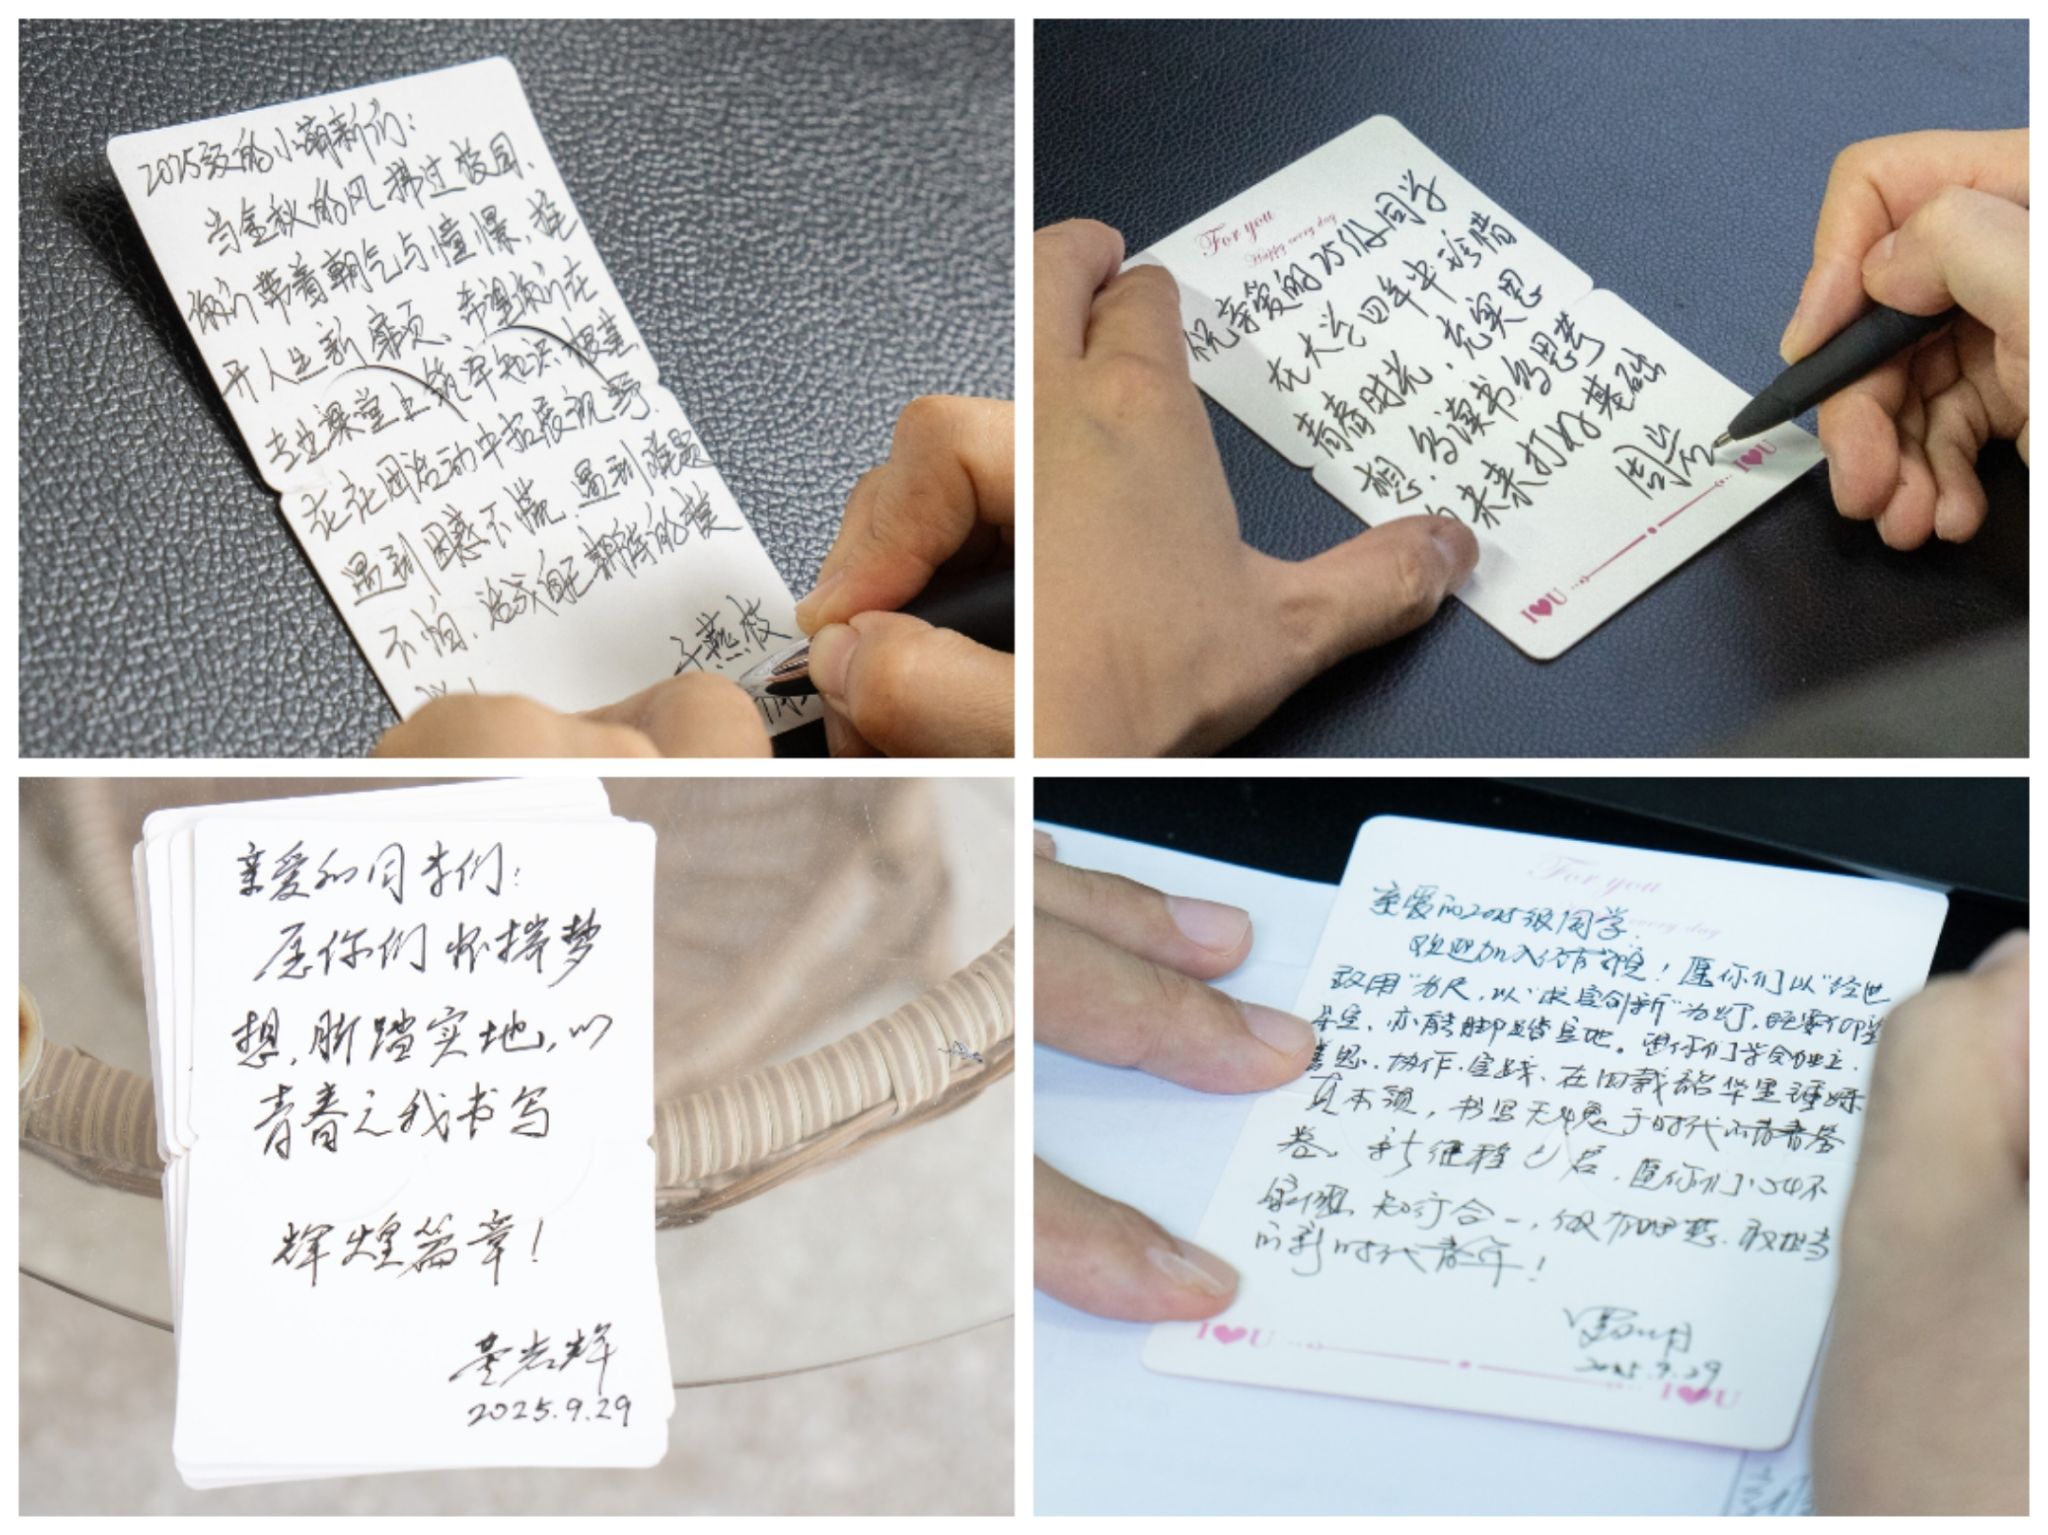 2025级的小萌新们:
当金秋的风拂过校园、
你们带着朝气与憧憬、掀
开人生新扉页、希望你们在
专业课堂上筑牢知识根基
在社团活动中拓展视野.
遇到困惑不慌、遇到难题
不怕、活成自己期待的模
于燕枝
For you
Happy every day
祝亲爱的25级同学
在大学四年中珍惜
青春时光,充实思
想.多读书多思考
为未来打好基础
周
I❤U
I❤U
亲爱的同学们:
愿你们怀揣梦
想,脚踏实地,以
青春之我书写
辉煌篇章!
董光辉
2025.9.29
For you
every day
亲爱的2025级同学
欢迎加入!愿你们以"经世
致用"为尺,以"求实创新"为灯,既要仰望
星空,亦能脚踏实地。愿你们学会独立、
善思、协作、实践、在四载韶华里锤炼
真本领,书写无愧于时代的青春答
卷。新征程已启,愿你们
知行合一,做有理想、敢担当
的新时代青年!
2025.9.29
I❤U
I❤U